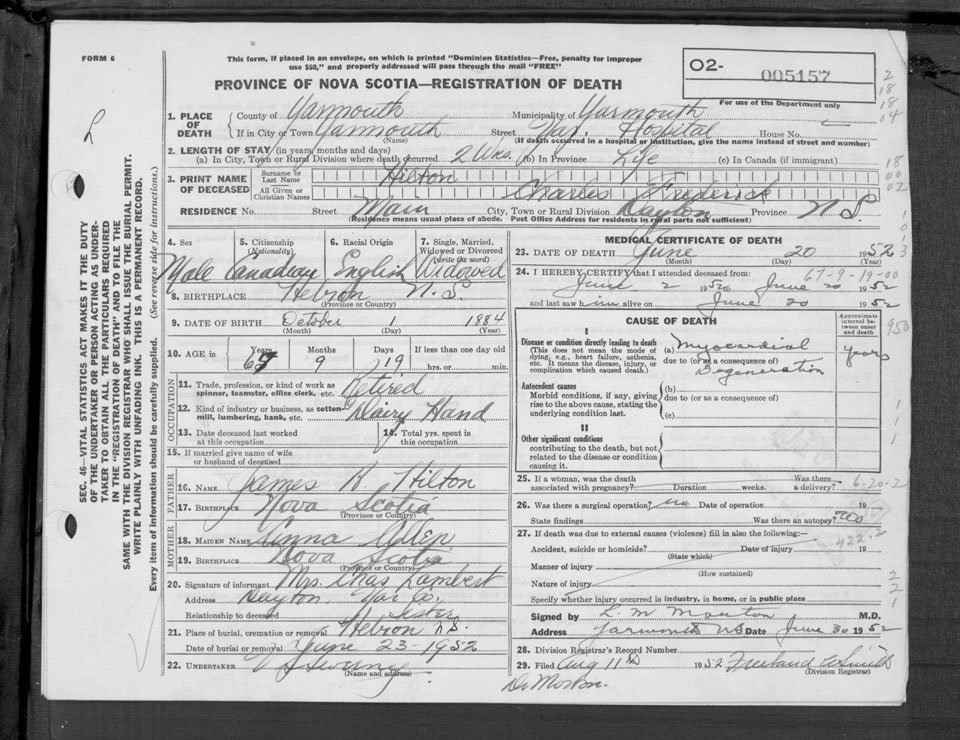 FORM 6
This form, if placed in an envelope, on which is printed "Dominion Statistics—Free, penalty for improper
use $50," and properly addressed will pass through the mail "FREE"
PROVINCE OF NOVA SCOTIA—REGISTRATION OF DEATH
O2- 005157
For use of the Department only
2
18
18
04
L
SEC. 46—VITAL STATISTICS ACT MAKES IT THE DUTY
OF THE UNDERTAKER OR PERSON ACTING AS UNDER-
TAKER TO OBTAIN ALL THE PARTICULARS REQUIRED
IN THE "REGISTRATION OF DEATH" AND TO FILE THE
SAME WITH THE DIVISION REGISTRAR WHO SHALL ISSUE THE BURIAL PERMIT.
WRITE PLAINLY WITH UNFADING INK. THIS IS A PERMANENT RECORD.
Every item of information should be carefully supplied. (See reverse side for instructions.)
1. PLACE OF DEATH County of Yarmouth Municipality of Yarmouth
If in City or Town Yarmouth Street Yar. Hospital House No.
(Name) (If death occurred in a hospital or institution, give the name instead of street and number)
2. LENGTH OF STAY (in years, months and days)
(a) In City, Town or Rural Division where death occurred 2 Wks. (b) In Province Life (c) In Canada (if immigrant)
18
00
02
3. PRINT NAME OF DECEASED Surname or Last Name Hilton
All Given or Christian Names Charles Frederick
RESIDENCE No. Street Main City, Town or Rural Division Dayton Province N.S.
(Residence means usual place of abode. Post Office Address for residents in rural parts not sufficient)
4. Sex 5. Citizenship (Nationality) 6. Racial Origin 7. Single, Married, Widowed or Divorced (write the word)
Male Canadian English Widowed
8. BIRTHPLACE Hebron N.S.
(Province or Country)
9. DATE OF BIRTH October 1 1884
(Month) (Day) (Year)
10. AGE in Years Months Days If less than one day old
67 9 19 hrs. or min.
OCCUPATION
11. Trade, profession, or kind of work as spinner, teamster, office clerk, etc. Retired
12. Kind of industry or business, as cotton-mill, lumbering, bank, etc. Dairy Hand
13. Date deceased last worked at this occupation
14. Total yrs. spent in this occupation
15. If married give name of wife or husband of deceased
FATHER
16. NAME James H. Hilton
17. BIRTHPLACE Nova Scotia
(Province or Country)
MOTHER
18. MAIDEN NAME Anna Allen
19. BIRTHPLACE Nova Scotia
(Province or Country)
20. Signature of informant Mrs. Chas Lambert
Address Dayton, Yar Co.
Relationship to deceased Sister
21. Place of burial, cremation or removal Hebron N.S.
Date of burial or removal June 23-1952
22. UNDERTAKER V S Sweeney
(Name and address)
MEDICAL CERTIFICATE OF DEATH
23. DATE OF DEATH June 20 1952
(Month) (Day) (Year)
24. I HEREBY CERTIFY that I attended deceased from: 67-9-19-00
June 2 1952 to June 20 1952
and last saw him alive on June 20 1952
CAUSE OF DEATH
Approximate interval between onset and death
950
I
Disease or condition directly leading to death
(This does not mean the mode of dying, e.g., heart failure, asthenia, etc. It means the disease, injury, or complication which caused death.)
(a) Myocardial years
due to (or as a consequence of)
Degeneration
Antecedent causes
Morbid conditions, if any, giving rise to the above cause, stating the underlying condition last.
(b)
due to (or as a consequence of)
(c)
II
Other significant conditions
contributing to the death, but not related to the disease or condition causing it.
25. If a woman, was the death associated with pregnancy? Duration weeks. Was there a delivery? 6-20-2
26. Was there a surgical operation? no Date of operation 19
State findings Was there an autopsy? no
27. If death was due to external causes (violence) fill in also the following:— 422.2
Accident, suicide or homicide? Date of injury 19
(State which)
Manner of injury
(How sustained)
Nature of injury
Specify whether injury occurred in industry, in home, or in public place
2
2
1
Signed by L. M. Morton M.D.
Address Yarmouth NS Date June 30 1952
28. Division Registrar's Record Number
29. Filed Aug 11th 1952 Freeland W Smith
(Division Registrar)
Dr Morton.